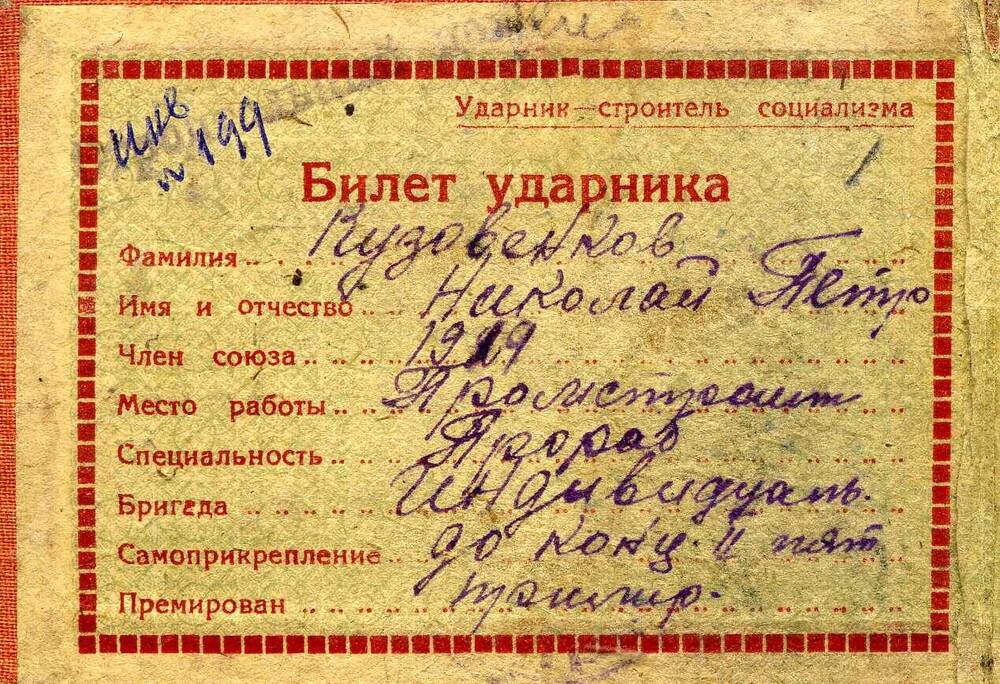 инв
№ 199
Ударник—строитель социализма
Билет ударника
Фамилия Кузовенков
Имя и отчество Николай Петро
Член союза 1919
Место работы Промстройт
Специальность Прораб
Бригада Индивидуаль.
Самоприкрепление до конц. II пят
Премирован премир.